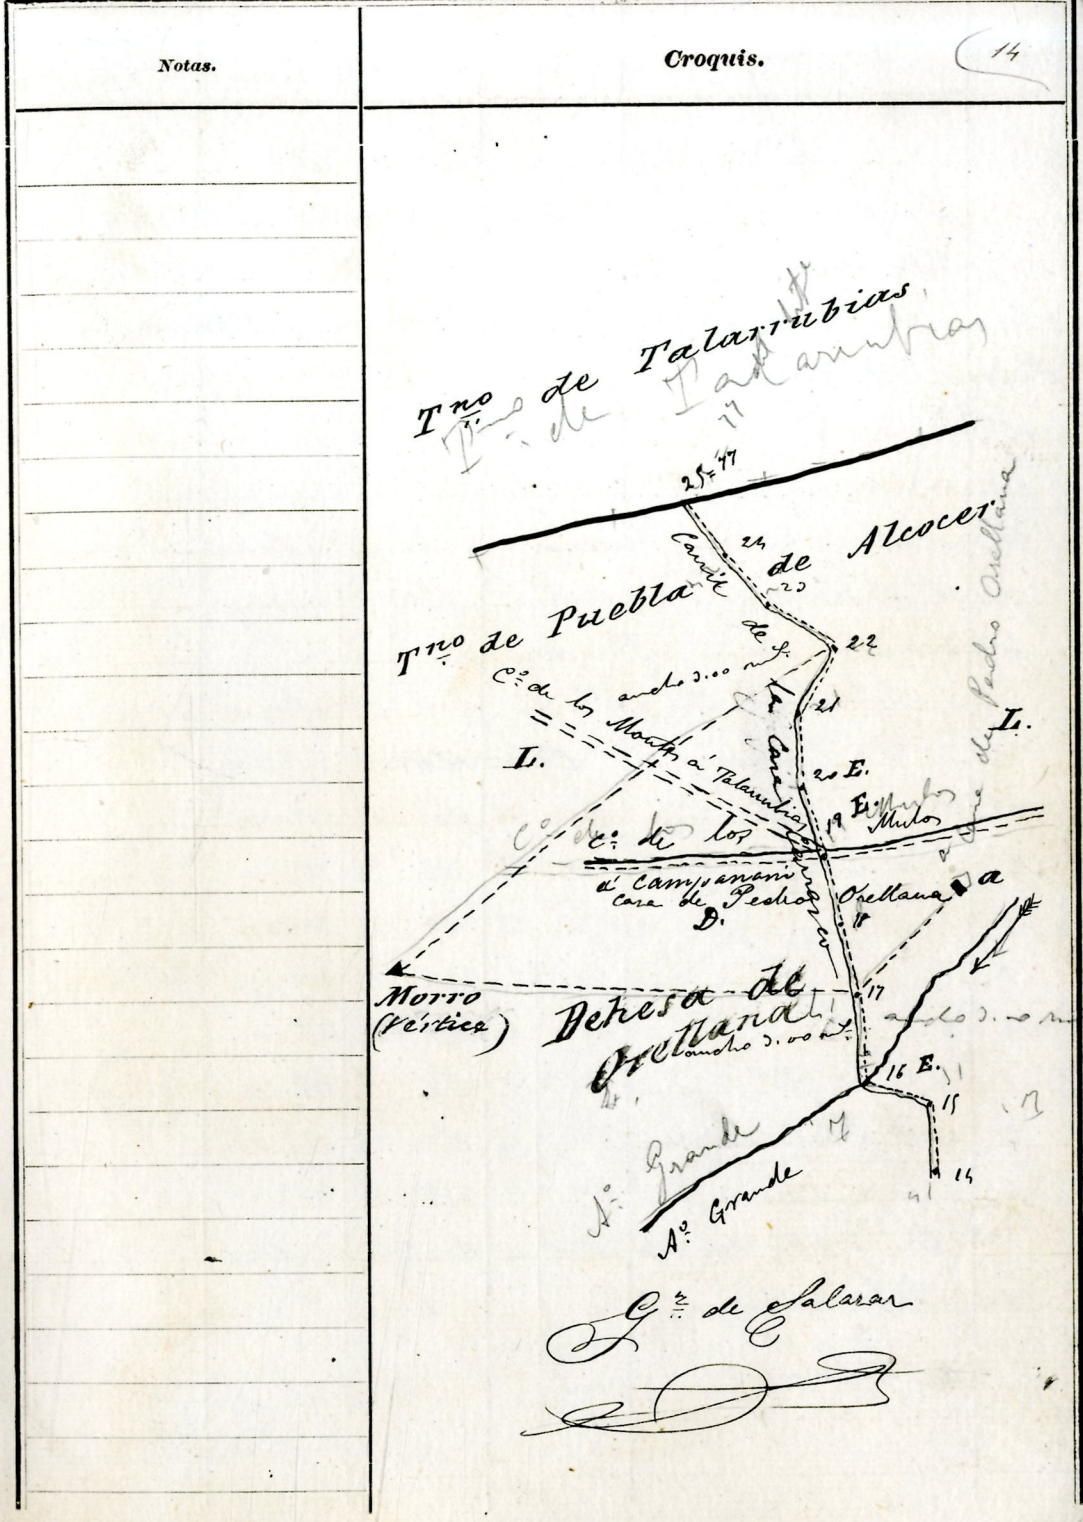 Notas.
Croquis.
14
Tno de Talarrubias
Tno de Talarrubias
25=47
24
23
22
21
20 E.
19 E.
18
17
16 E.
15
14
Tno de Puebla de Alcocer
Carril de la Casa
ancho 3.00 m
Cº de los Montes a Talarrubias
L.
L.
Cº de los Mulos
Mulos
á Campanario
casa de Pedro Orellana
D.
a
casa de Pedro Orellana
Morro
(Vértice)
Dehesa de
Orellana
ancho 3.00 m
ancho 3.00 m
Aº Grande
Aº Grande
Gz de Salazar